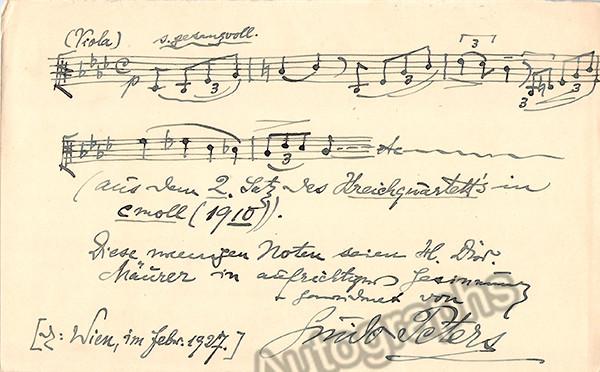 (Viola) s. gesangvoll.
p 3 3 3 3
3
(aus dem 2. Satz des Streichquartett's in
cmoll (1910)).
Diese wenigen Noten seien H. Dir.
Mäurer in aufrichtiger Gesinnung
gewidmet von
Guido Peters
[d: Wien, im Febr. 1927.]
Autographs